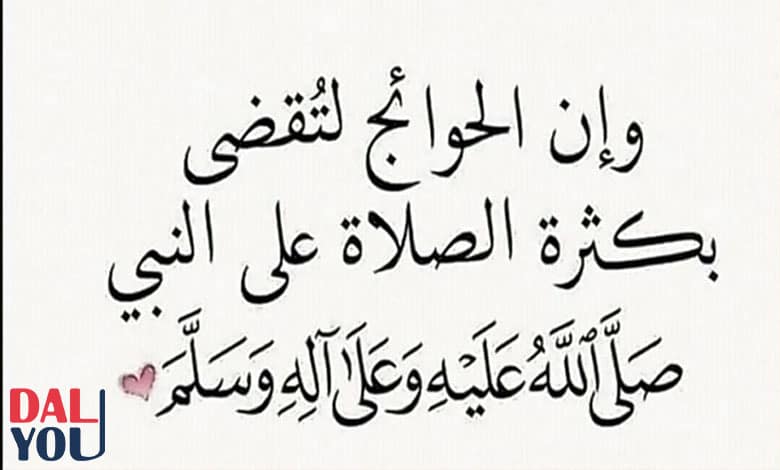 وإن الحوائج لتُقضى
بكثرة الصلاة على النبي
صَلَّى اللَّهُ عَلَيْهِ وَعَلَىٰ آلِهِ وَسَلَّمَ
DAL
YOU